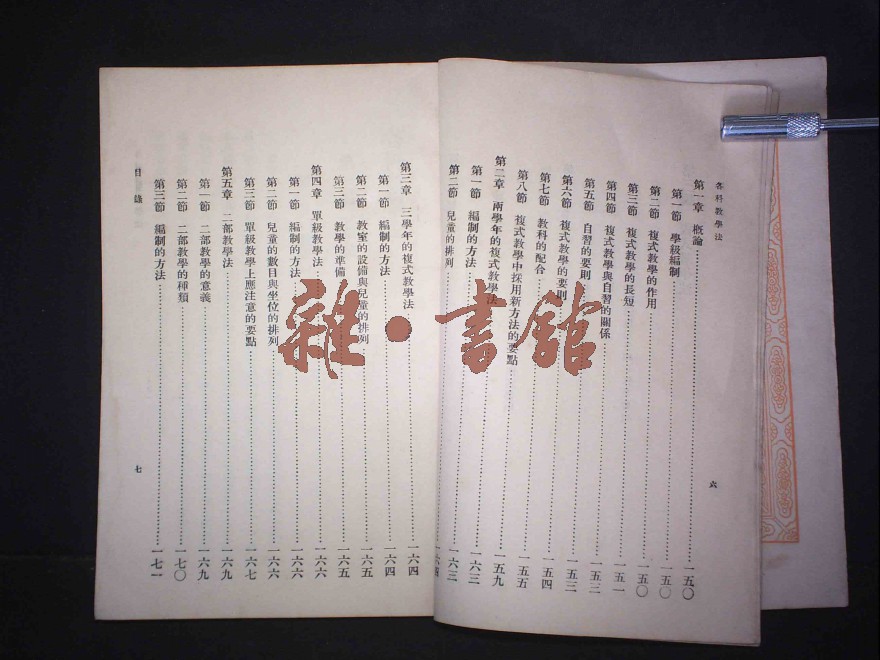 各科教學法
第一章 概論 一五〇
第一節 學級編制 一五〇
第二節 複式教學的作用 一五〇
第三節 複式教學的長短 一五一
第四節 複式教學與自習的關係 一五二
第五節 自習的要則 一五三
第六節 複式教學的要則 一五四
第七節 教科的配合 一五五
第八節 複式教學中採用新方法的要點 一五九
第二章 兩學年的複式教學法 一六三
第一節 編制的方法 一六三
第二節 兒童的排列
六
第三章 三學年的複式教學法 一六四
第一節 編制的方法 一六四
第二節 教室的設備與兒童的排列 一六五
第三節 教學的準備 一六五
第四章 單級教學法 一六六
第一節 編制的方法 一六六
第二節 兒童的數目與坐位的排列 一六六
第三節 單級教學上應注意的要點 一六七
第五章 二部教學法 一六九
第一節 二部教學的意義 一六九
第二節 二部教學的種類 一七〇
第三節 編制的方法 一七一
目錄
七
雜·書館